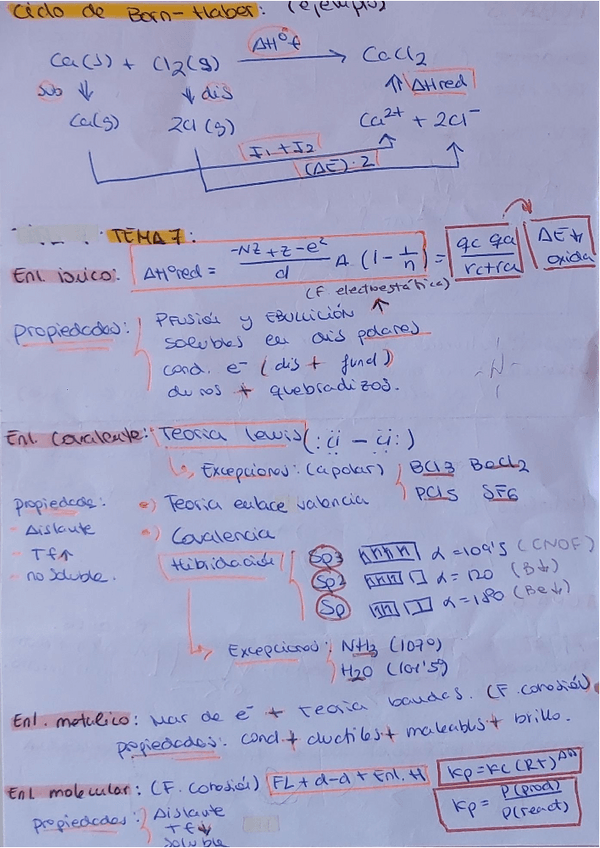 Ciclo de Born-Haber: (ejemplo)
Ca(s) + Cl2(g) ΔHº f → CaCl2
sub ↓ ↓ dis ↑ ΔHred
Ca(g) 2Cl(g) Ca2+ + 2Cl-
I1 + I2
(ΔE)·2
TEMA 7:
Enl. iónico: ΔHºred = -NZ+Z-e2/d A (1 - 1/n) = qc qa/rc+ra ΔE↓ oxida
(F electroestática)
Propiedades: PFusión y EBULLICIÓN ↑
solubles en dis polares
cond. e- (dis + fund)
duros + quebradizos.
-N-
Enl Covalente: Teoría Lewis (:Cl - Cl:)
↳ Excepciones: (apolar) BCl3 BeCl2
PCl5 SF6
propiedade: •) Teoría enlace valencia
- Aislante •) Covalencia
- Tf↑ Hibridación Sp3 α = 109'5 (CNOF)
- no soluble. Sp2 α = 120 (B↓)
Sp α = 180 (Be↓)
↳ Excepciones: NH3 (107º)
H2O (104'5º)
Enl. metálico: Mar de e- + Teoría bandas. (F. cohesión)
propiedades: cond + ductiles + maleables + brillo.
Enl molecular: (F. cohesión) FL + d-d + Enl. H Kp = Kc (Rt)Δn
propiedades: Aislante Kp = P(prod)/P(react)
Tf↓
soluble